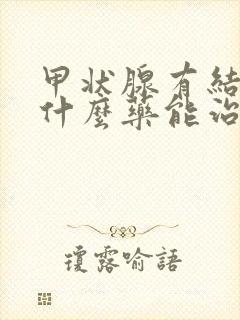 甲状腺有結
什麼藥能治
瓊露喻語